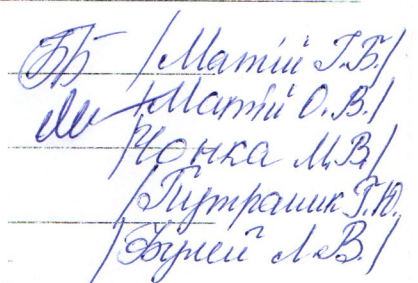 ББ /Матій Г.Б./
Ми /Матій О.В./
/Чонка М.В./
/Путрашик Г.Ю.
/Буней Л.В./